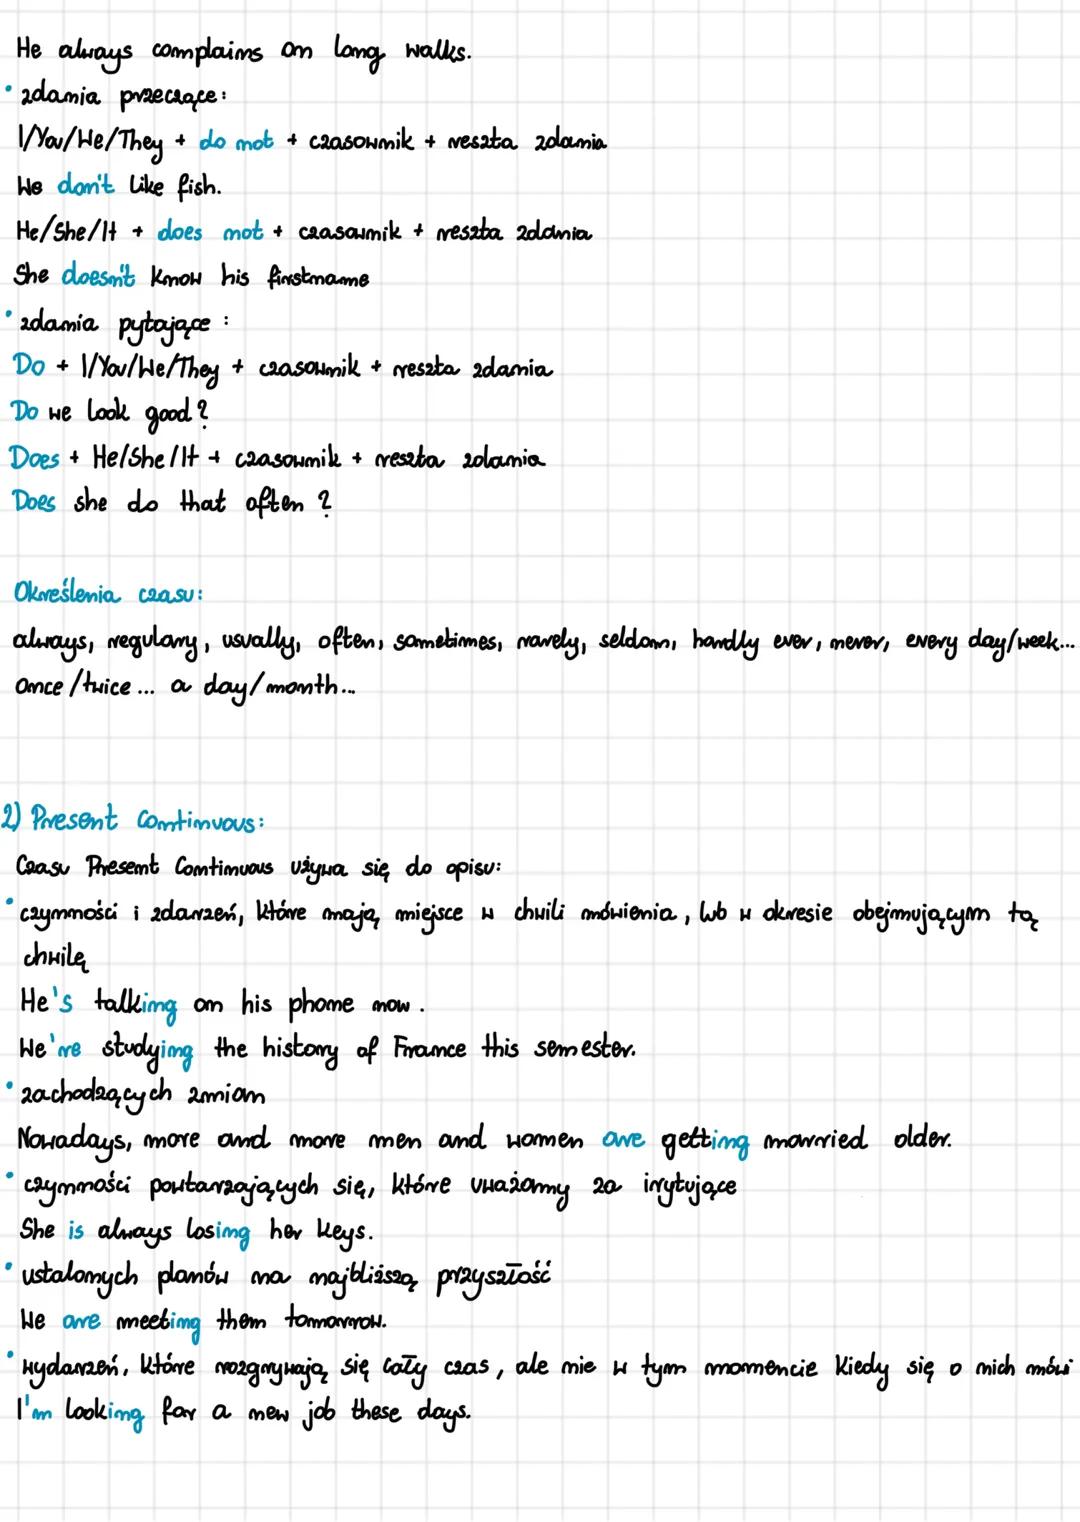 He always complains on long walks.
• zdania przeczące:
I/You/We/They + do not + czasownik + reszta zdania
We don't like fish.
He/She/It + does not + czasownik + reszta zdania
She doesn't know his firstname
• zdania pytające :
Do + I/You/We/They + czasownik + reszta zdania
Do we look good?
Does + He/She/It + czasownik + reszta zdania
Does she do that often ?
Określenia czasu:
always, regulary, usually, often, sometimes, rarely, seldom, hardly ever, never, every day/week...
once/twice... a day/month...
2) Present Continuous:
Czasu Present Continuous używa się do opisu:
• czynności i zdarzeń, które mają miejsce w chwili mówienia, lub w okresie obejmującym tą
chwilę
He's talking on his phone now.
We're studying the history of France this semester.
• zachodzących zmian
Nowadays, more and more men and women are getting married older.
• czynności powtarzających się, które uważamy za irytujące
She is always losing her keys.
• ustalonych planów na najbliższą przyszłość
We are meeting them tomorrow.
• wydarzeń, które rozgrywają się cały czas, ale nie w tym momencie kiedy się o nich mówi
I'm looking for a new job these days.